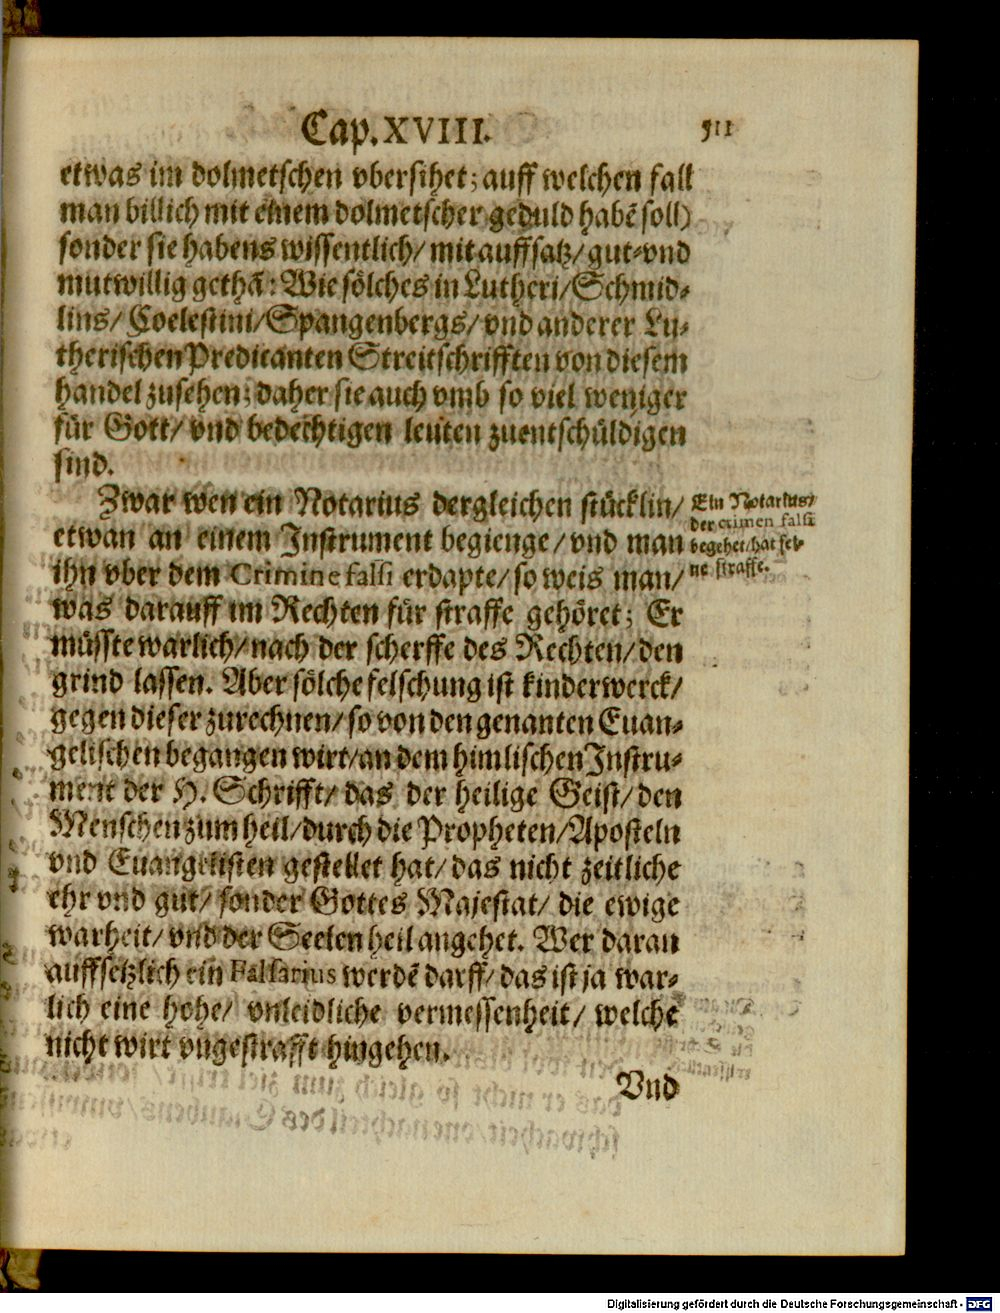 Cap. XVIII. 511
etwas im dolmetschen vbersihet; auff welchen fall
man billich mit einem dolmetscher geduld habẽ soll)
sonder sie habens wissentlich/ mit auffsatz/ gut-vnd
mutwillig gethã: Wie sölches in Lutheri/ Schmid-
lins/ Coelestini/ Spangenbergs/ vnd anderer Lu-
therischen Predicanten Streitschrifften von diesem
handel zusehen; daher sie auch vmb so viel weniger
für Gott/ vnd bedechtigen leüten zuentschüldigen
sind.
Zwar wen ein Notarius dergleichen stücklin/
etwan an einem Instrument begienge/ vnd man
ihn vber dem Crimine falsi erdapte/ so weis man/
was darauff im Rechten für straffe gehöret; Er
müsste warlich/ nach der scherffe des Rechten/ den
grind lassen. Aber sölche felschung ist kinderwerck/
gegen dieser zurechnen/ so von den genanten Euan-
gelischen begangen wirt/ an dem himlischen Instru-
ment der H. Schrifft/ das der heilige Geist/ den
Menschen zum heil/ durch die Propheten/ Aposteln
vnd Euangelisten gestellet hat/ das nicht zeitliche
ehr vnd gut/ sonder Gottes Majestat/ die ewige
warheit/ vnd der Seelen heil angehet. Wer daran
auffsetzlich ein Falsarius werdẽ darff/ das ist ja war-
lich eine hohe/ vnleidliche vermessenheit/ welche
nicht wirt vngestrafft hingehen.
Vnd
Ein Notarius/
der crimen falsi
begehet/ hat sei-
ne straffe.
Digitalisierung gefördert durch die Deutsche Forschungsgemeinschaft - DFG